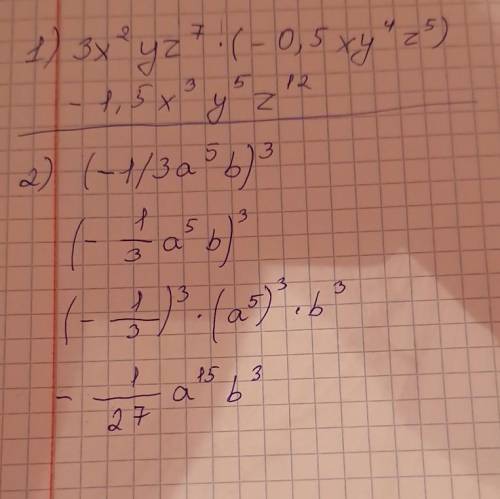 1) 3x²yz⁷·(-0,5xy⁴z⁵)
-1,5x³y⁵z¹²
2) (-1/3a⁵b)³
(-1/3 a⁵b)³
(-1/3)³·(a⁵)³·b³
-1/27 a¹⁵b³